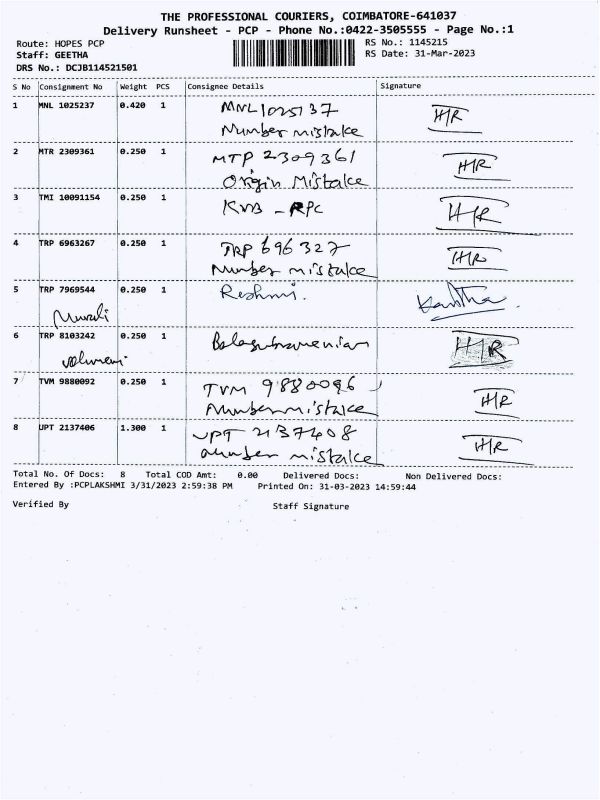 THE PROFESSIONAL COURIERS, COIMBATORE-641037
Delivery Runsheet - PCP - Phone No.:0422-3505555 - Page No.:1
Route: HOPES PCP RS No.: 1145215
Staff: GEETHA RS Date: 31-Mar-2023
DRS No.: DCJB114521501
S No Consignment No Weight PCS Consignee Details Signature
1 MNL 1025237 0.420 1 MNL1025137 H/R
Number mistake
2 MTR 2309361 0.250 1 MTP 2309361 H/R
Origin Mistake
3 TMI 10091154 0.250 1 KVB - RPC H/R
4 TRP 6963267 0.250 1 TRP 696327 H/R
Number mistake
5 TRP 7969544 0.250 1 Reshmi. Kavitha
Murali
6 TRP 8103242 0.250 1 Balasubramanian H/R
7 TVM 9880092 0.250 1 TVM 9880096 H/R
Number mistake
8 UPT 2137406 1.300 1 UPT 2137408 H/R
number mistake
Total No. Of Docs: 8 Total COD Amt: 0.00 Delivered Docs: Non Delivered Docs:
Entered By :PCPLAKSHMI 3/31/2023 2:59:38 PM Printed On: 31-03-2023 14:59:44
Verified By Staff Signature